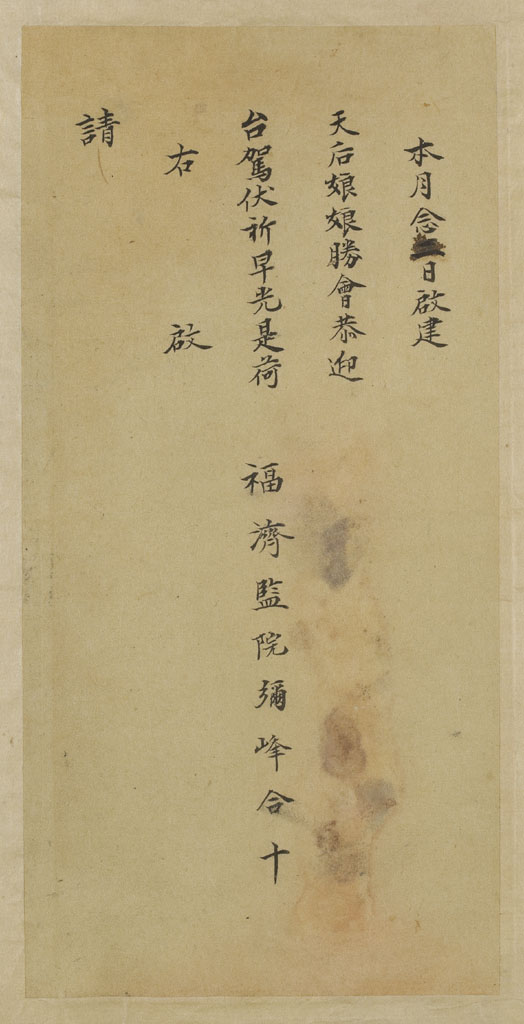 本月念三日啟建
天后娘娘勝會恭迎
台駕伏祈早光是荷
福濟監院彌峰合十
右啟
請